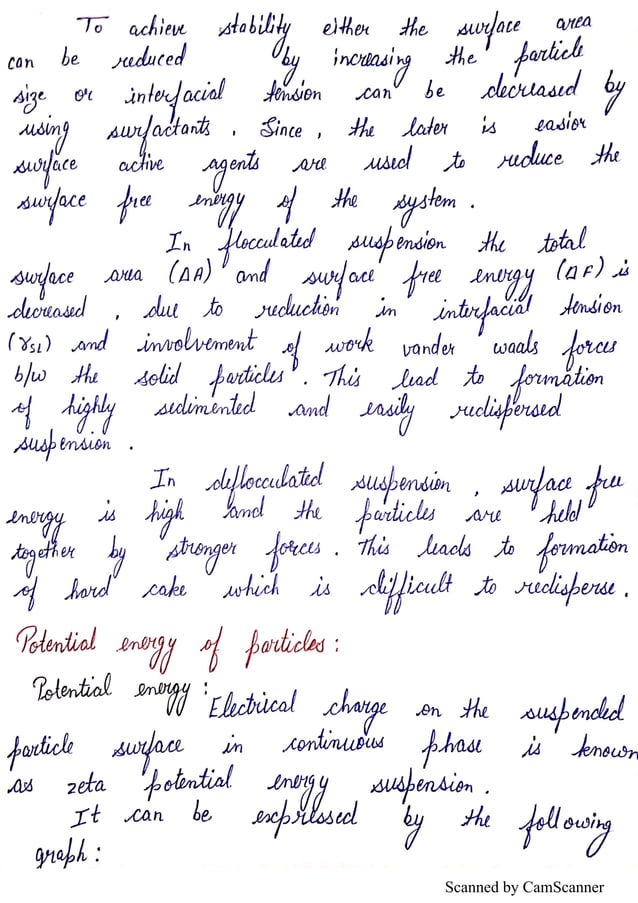 To achieve stability either the surface area
can be reduced by increasing the particle
size or interfacial tension can be decreased by
using surfactants. Since, the later is easior
surface active agents are used to reduce the
surface free energy of the system.
In flocculated suspension the total
surface area (ΔA) and surface free energy (ΔF) is
decreased, due to reduction in interfacial tension
(γSL) and involvement of work vander waals forces
b/w the solid particles. This lead to formation
of highly sedimented and easily redispersed
suspension.
In deflocculated suspension, surface free
energy is high and the particles are held
together by stronger forces. This leads to formation
of hard cake which is difficult to redisperse.
Potential energy of particles:
Potential energy:
Electrical charge on the suspended
particle surface in continuous phase is known
as zeta potential energy suspension.
It can be expressed by the following
graph:
Scanned by CamScanner